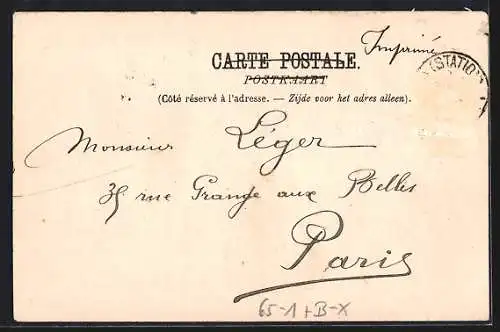 Imprimé
CARTE POSTALE.
POSTKAART
(Côté réservé à l'adresse. — Zijde voor het adres alleen).
(STATIO
Monsieur Léger
35 rue Grange aux Belles
Paris
65-1+B-X